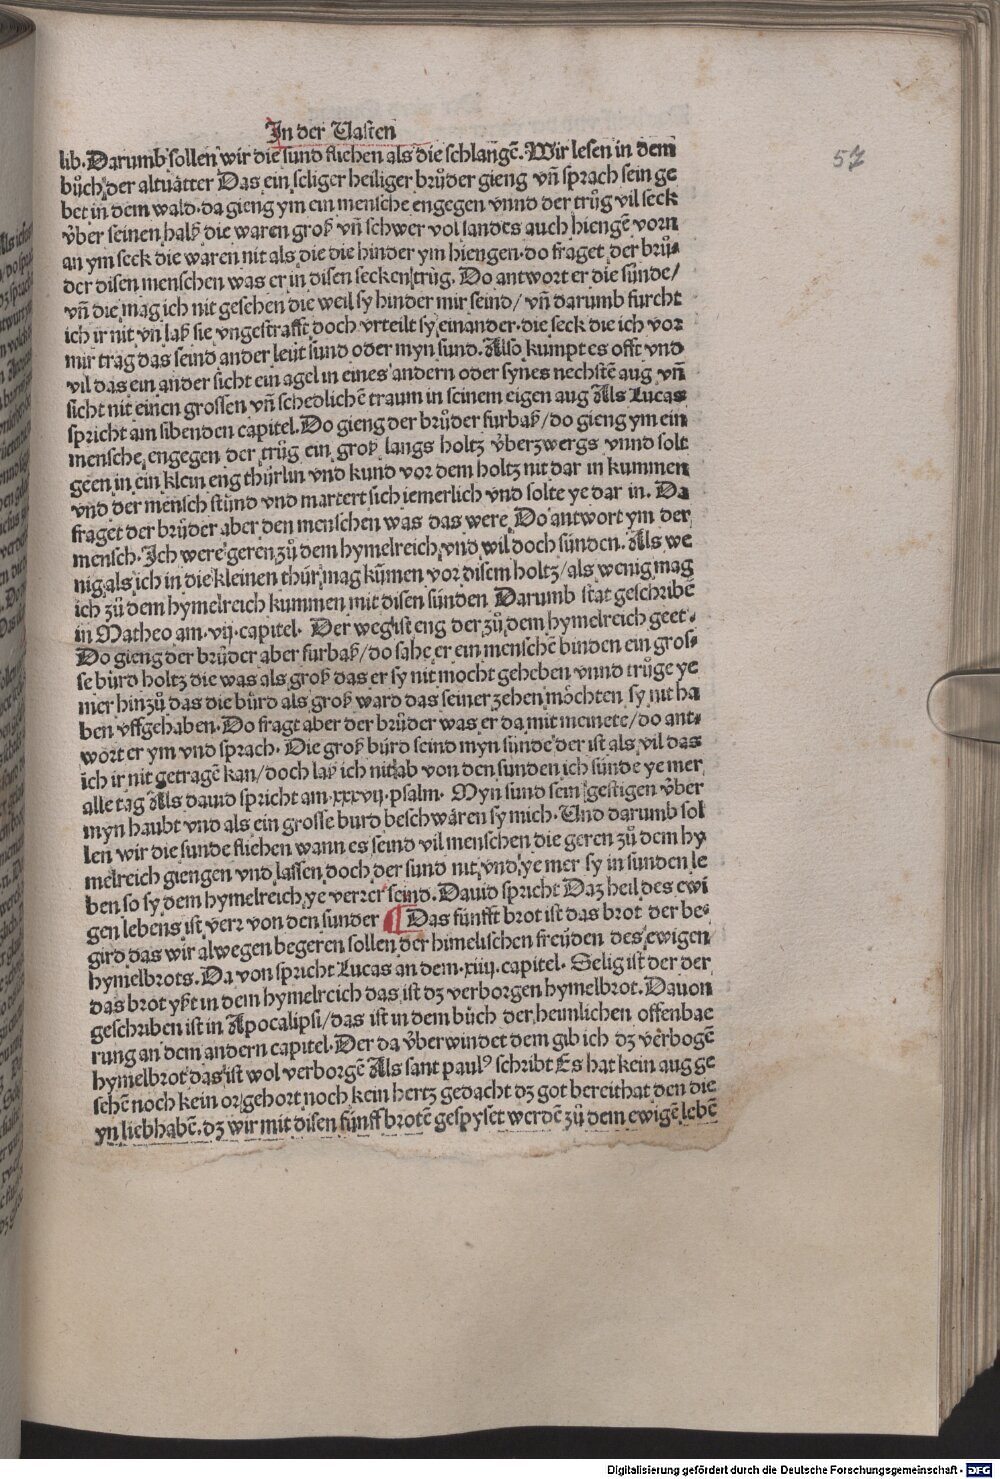 In der Vasten
57
lib. Darumb sollen wir die sund fliehen als die schlangē. Wir lesen in dem
bůch der altuätter Das ein seliger heiliger brůder gieng vñ sprach sein ge
bet in dem wald. da gieng ym ein mensche engegen vnnd der trůg vil seck
v̈ber seinen halß die waren groß vñ schwer vol sandes auch hiengē vorn
an ym seck die waren nit als die die hinder ym hiengen. do fraget der brů⸗
der disen menschen was er in disen secken trůg. Do antwort er die sünde/
vñ die mag ich nit gesehen die weil sy hinder mir seind/ vñ darumb furcht
ich ir nit vñ laß sie vngestrafft doch vrteilt sy einander. die seck die ich vor
mir trag das seind ander leüt sund oder myn sund. Also kumpt es offt vnd
vil das ein ander sicht ein agel in eines andern oder synes nechstē aug vñ
sicht nit einen grossen vñ schedlichē traum in seinem eigen aug Als Lucas
spricht am sibenden capitel. Do gieng der brůder furbaß/ do gieng ym ein
mensche engegen der trůg ein groß langs holtz v̈berzwergs vnnd solt
geen in ein klein eng thürlin vnd kund vor dem holtz nit dar in kummen
vnd der mensch stůnd vnd martert sich iemerlich vnd solte ye dar in. Da
fraget der brůder aber den menschen was das were Do antwort ym der
mensch. Ich were geren zů dem hymelreich vnd wil doch sünden. Als we
nig als ich in die kleinen thür mag kūmen vor disem holtz/ als wenig mag
ich zů dem hymelreich kummen mit disen sünden Darumb stat geschribē
in Matheo am. vij. capitel. Der weg ist eng der zů dem hymelreich geet.
Do gieng der brůder aber furbaß/ do sahe er ein menschē binden ein gros⸗
se bürd holtz die was als groß das er sy nit mocht geheben vnnd trůge ye
mer hinzů das die bürd als groß ward das seiner zehen möchten sy nit ha
ben vffgehaben. Do fragt aber der brůder was er da mit meinete/ do ant⸗
wort er ym vnd sprach. Die groß bürd seind myn sünde der ist als vil das
ich ir nit getragē kan/ doch laß ich nit ab von den sunden ich sünde ye mer
alle tag Als dauid spricht am. xxxvij. psalm. Myn sund sein gestigen v̈ber
myn haubt vnd als ein grosse burd beschwären sy mich. Und darumb sol
len wir die sunde fliehen wann es seind vil menschen die geren zů dem hy
melreich giengen vnd lassen doch der sund nit vnd ye mer sy in sunden le
ben so sy dem hymelreich ye verrer seind. Dauid spricht Daz heil des ewi
gen lebens ist verr von den sunder ¶ Das fünfft brot ist das brot der be⸗
gird das wir alwegen begeren sollen der himelischen freüden des ewigen
hymelbrots. Da von spricht Lucas an dem. xiiij. capitel. Selig ist der der
das brot yßt in dem hymelreich das ist dz verborgen hymelbrot. Dauon
geschriben ist in Apocalipsi/ das ist in dem bůch der heimlichen offenba
rung an dem andern capitel. Der da v̈berwindet dem gib ich dz verbogē
hymelbrot das ist wol verborgē Als sant paulꝰ schribt Es hat kein aug ge
sehē noch kein or gehort noch kein hertz gedacht dz got bereit hat den die
yn liebhabē. dz wir mit disen fünff brotē gespyset werdē zů dem ewigē lebē
Digitalisierung gefördert durch die Deutsche Forschungsgemeinschaft - DFG